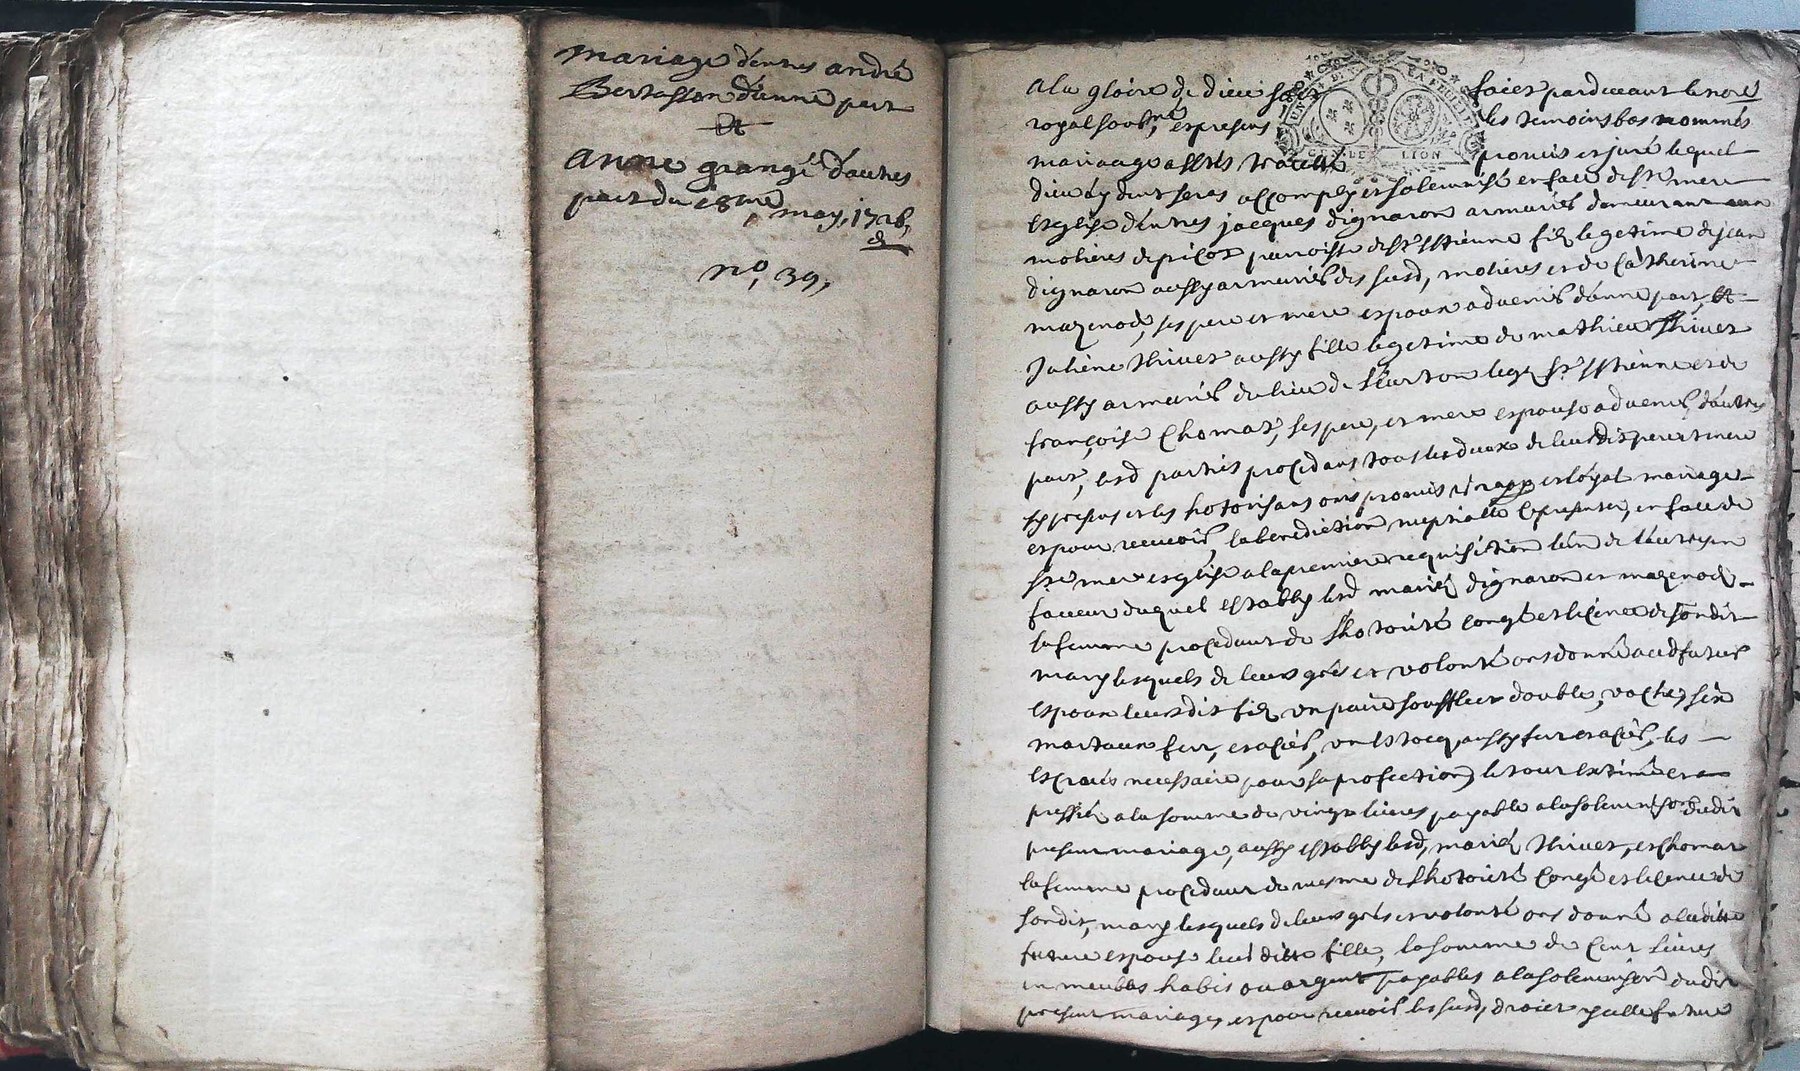 mariage d'entres andré
Bertasson d'unne part
Et
anne grangé d'autres
part du 18me may, 1726,
no, 39,
A la gloire de dieu soit faict pardevant le nore
royal soubne, et presens les temoins bas nommés
mariage a estés traicté promis et juré lequel
dieu aydent seras accomply et solemnisé en face de ste mere
Esglise d'entres jacques dignaron armuries demeurant aux
molieres de paroisse de st Estienne fils legetime de jean
dignaron aussy armuries des susd, molieres et de Catherine
mazenod, ses pere et mere espoux advenir d'unne part, Et
Juliene thivet aussy fille legetime de mathieu thivet
aussy armuries du lieu de st Estienne et de
françoise Chomat, ses pere, et mere espouse advenir, d'autres
part, lesd parties procedans tous les deux de leursdit pere et mere
sy presens et les hotorisans ont promis vray et loyal mariage
et pour recevoir, la benediction nuptialle se presenter, en face de
ste mere esglise a la premiere requisition l'un de l'autre en
faveur duquel establys lesd mariés dignaron et mazenod,
la femme procedant de l'hotorité congé et licence de sondit
mary lesquels de leurs grés et volonté ont donné aud futur
espoux leursdit fils un paire soufflet double, vache, six
marteaux fer, et acier, un Estocq aussy fer et acier, les
necessaire pour sa profection, le tout extimé et a
pressié a la somme de vingt livres payable a la solemnison dudit
present mariage, aussy establys lesd, mariés thivet, et Chomat
la femme procedant de mesme de l'hotorité Congé et licence de
sondit, mary lesquels de leurs grés et volonté ont donné a laditte
future espouse leurditte fille, la somme de Cent livres
en meubles habis ou argent payables a la solemnison dudit
present mariage, et pour recevoir les susd, droict future
GEN DE LION